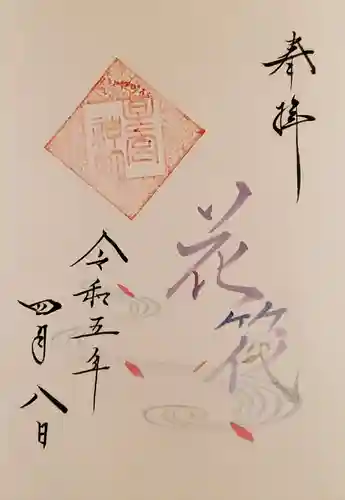 奉拝
花筏
令和五年
四月八日